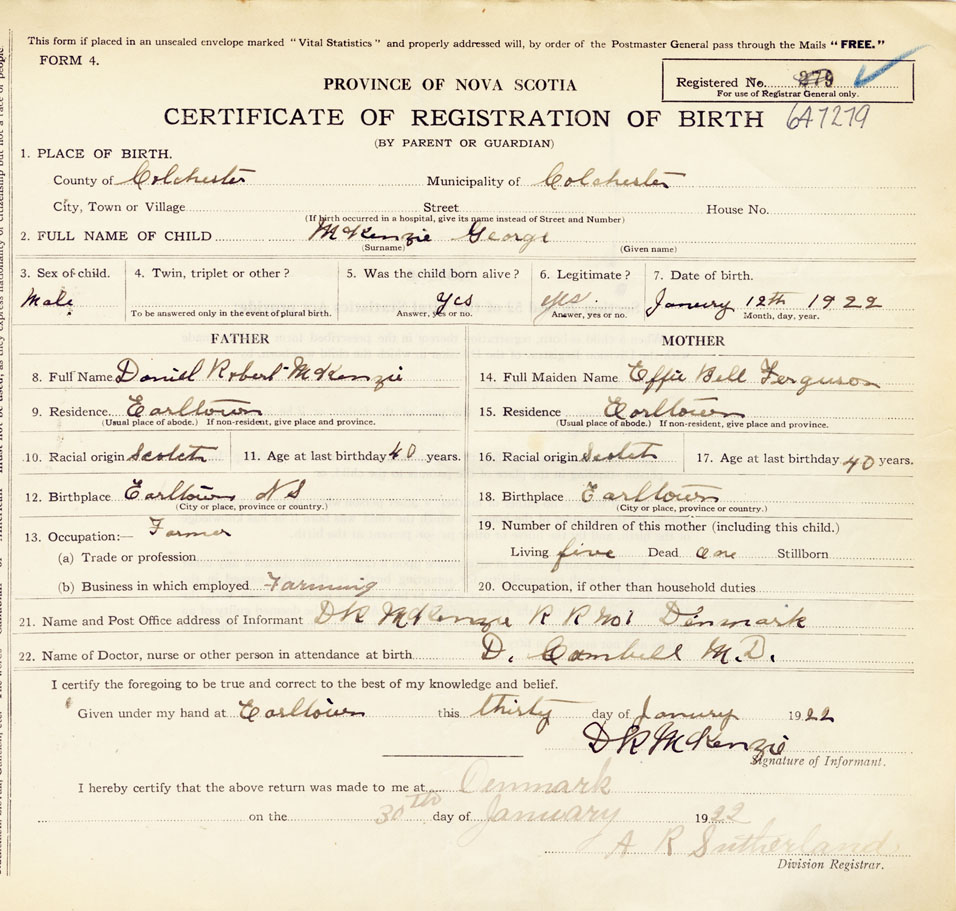 This form if placed in an unsealed envelope marked "Vital Statistics" and properly addressed will, by order of the Postmaster General pass through the Mails "FREE."
FORM 4.
Registered No. 279
For use of Registrar General only.
PROVINCE OF NOVA SCOTIA
CERTIFICATE OF REGISTRATION OF BIRTH 647279
(BY PARENT OR GUARDIAN)
1. PLACE OF BIRTH.
County of Colchester Municipality of Colchester
City, Town or Village Street House No.
(If birth occurred in a hospital, give its name instead of Street and Number)
2. FULL NAME OF CHILD McKenzie George
(Surname) (Given name)
3. Sex of child. 4. Twin, triplet or other? 5. Was the child born alive? 6. Legitimate? 7. Date of birth.
Male Yes yes. January 12th 1922
To be answered only in the event of plural birth. Answer, yes or no. Answer, yes or no. Month, day, year.
FATHER MOTHER
8. Full Name Daniel Robert McKenzie 14. Full Maiden Name Effie Bell Ferguson
9. Residence Earltown 15. Residence Earltown
(Usual place of abode.) If non-resident, give place and province. (Usual place of abode.) If non-resident, give place and province.
10. Racial origin Scotch 11. Age at last birthday 40 years. 16. Racial origin Scotch 17. Age at last birthday 40 years.
12. Birthplace Earltown N S 18. Birthplace Earltown
(City or place, province or country.) (City or place, province or country.)
13. Occupation:— Farmer 19. Number of children of this mother (including this child.)
(a) Trade or profession Living five Dead One Stillborn
(b) Business in which employed Farming 20. Occupation, if other than household duties
21. Name and Post Office address of Informant D R McKenzie R R No 1 Denmark
22. Name of Doctor, nurse or other person in attendance at birth D. Cambell M.D.
I certify the foregoing to be true and correct to the best of my knowledge and belief.
Given under my hand at Earltown this thirty day of January 1922
D R McKenzie
Signature of Informant.
I hereby certify that the above return was made to me at Denmark
on the 30th day of January 1922
A R Sutherland
Division Registrar.